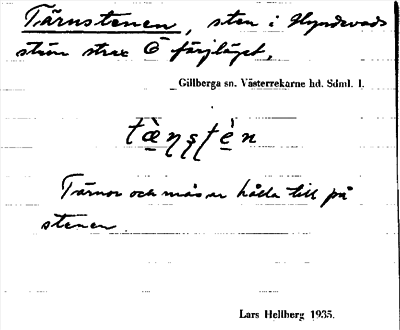 Tärnstenen, sten i Hyndevads
ström strax Ö färjläget.
Gillberga sn. Västerrekarne hd. Sdml. l.
Tärnor och måsar hålla till på
stenen.
Lars Hellberg 1935.